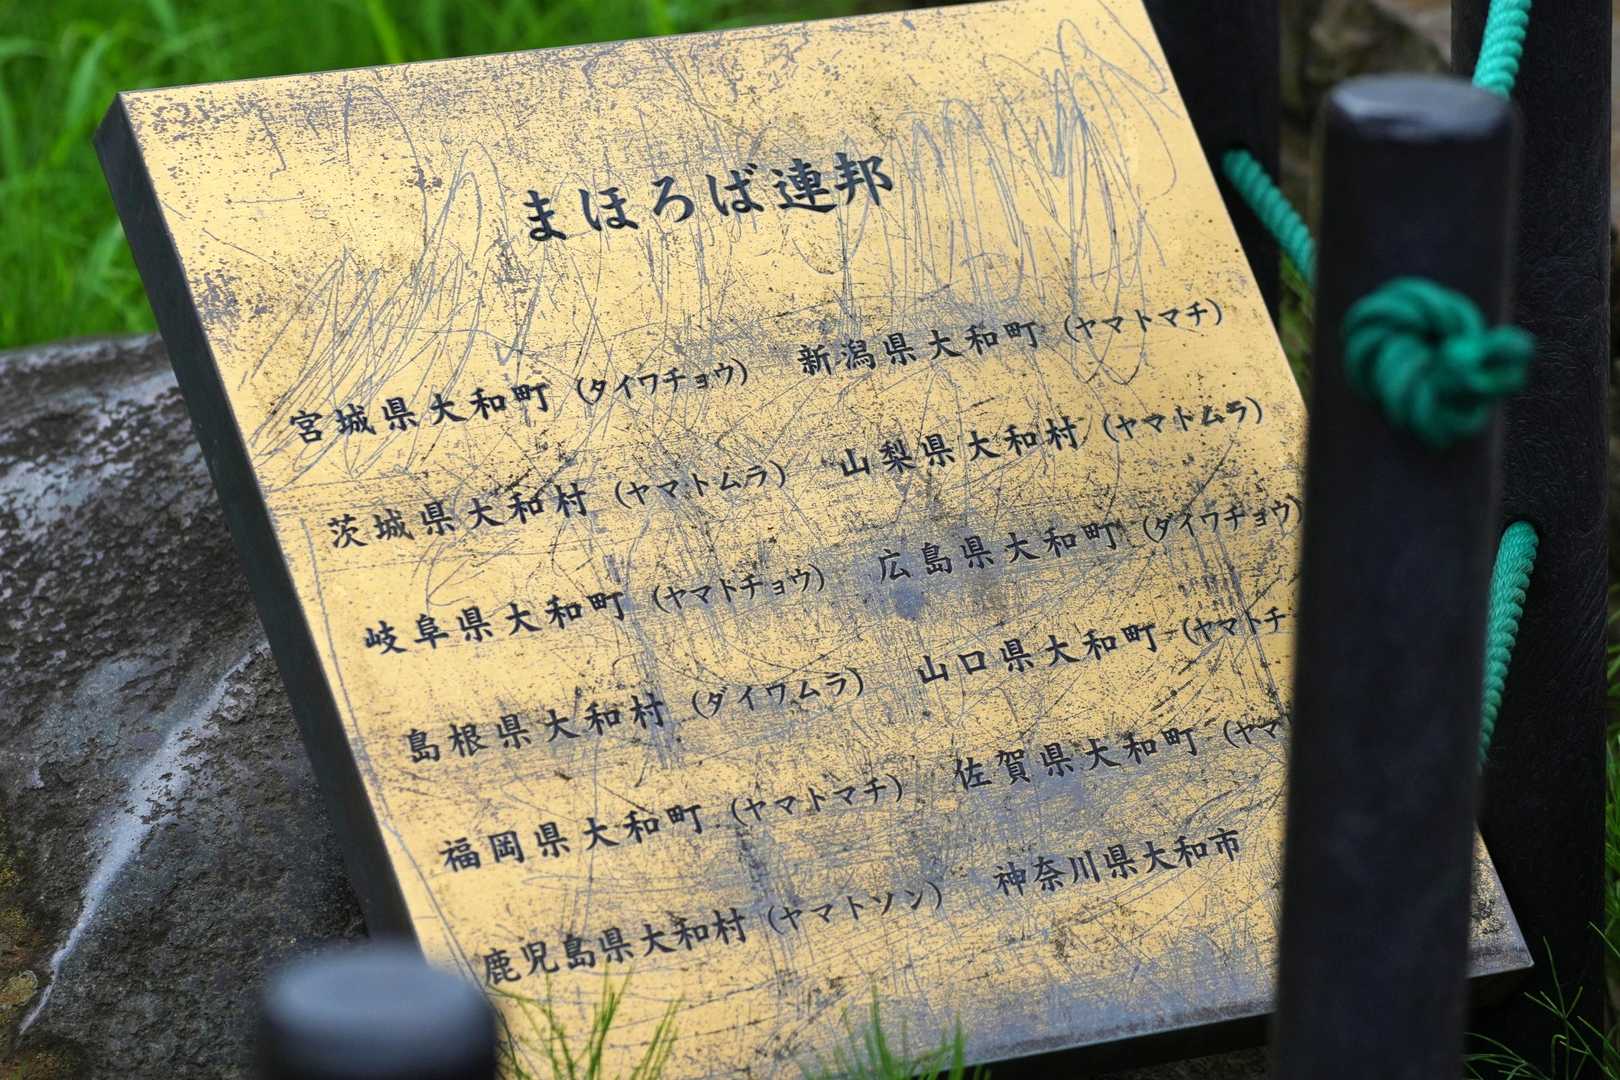 まほろば連邦
宮城県大和町（タイワチョウ） 新潟県大和町（ヤマトマチ）
茨城県大和村（ヤマトムラ） 山梨県大和村（ヤマトムラ）
岐阜県大和町（ヤマトチョウ） 広島県大和町（ダイワチョウ）
島根県大和村（ダイワムラ） 山口県大和町（ヤマトチ
福岡県大和町（ヤマトマチ） 佐賀県大和町（ヤマ
鹿児島県大和村（ヤマトソン） 神奈川県大和市